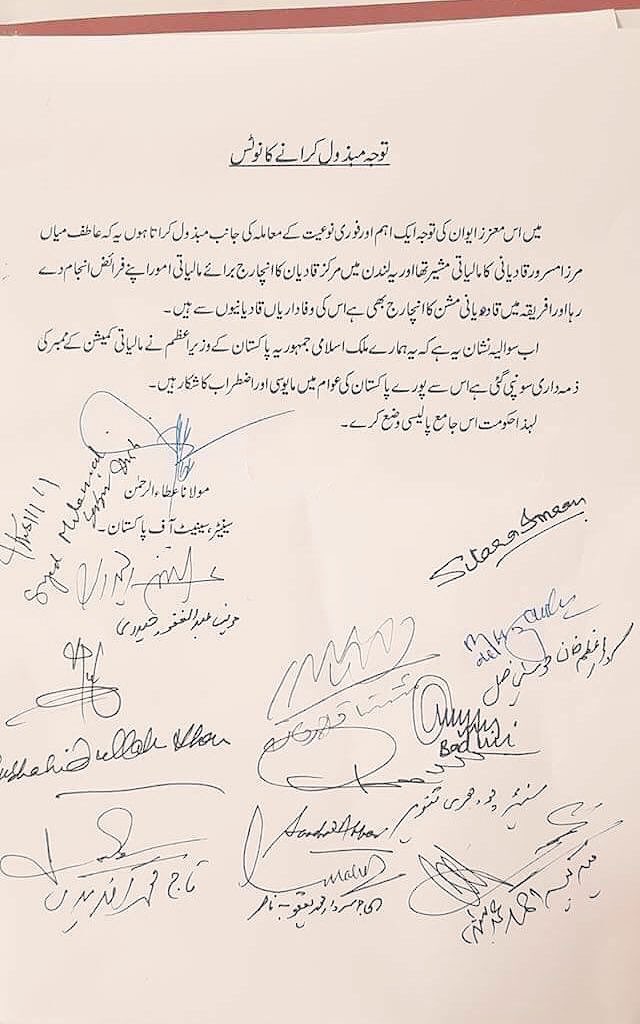 توجہ مبذول کرانے کا نوٹس
میں اس معزز ایوان کی توجہ ایک اہم اور فوری نوعیت کے معاملہ کی جانب مبذول کراتا ہوں یہ کہ عاطف میاں
مرزا مسرور قادیانی کا مالیاتی مشیر تھا اور یہ لندن میں مرکز قادیان کا انچارج برائے مالیاتی امور اپنے فرائض انجام دے
رہا اور افریقہ میں قادیانی مشن کا انچارج بھی ہے اس کی وفاداریاں قادیانیوں سے ہیں۔
اب سوالیہ نشان یہ ہے کہ یہ ہمارے ملک اسلامی جمہوریہ پاکستان کے وزیراعظم نے مالیاتی کمیشن کے ممبر کی
ذمہ داری سونپی گئی ہے اس سے پورے پاکستان کی عوام میں مایوسی اور اضطراب کا شکار ہیں۔
لہذا حکومت اس جامع پالیسی وضع کرے۔
مولانا عطاء الرحمٰن
سینیٹر، سینیٹ آف پاکستان۔
Syed Muhammad
Sitara Imran
عبدالغفور حیدری
سردار اعظم خان موسیٰ خیل
Mushahidullah Khan
Badini
سینیٹر چودھری تنویر
تاج محمد آفریدی
سردار محمد یعقوب ناصر